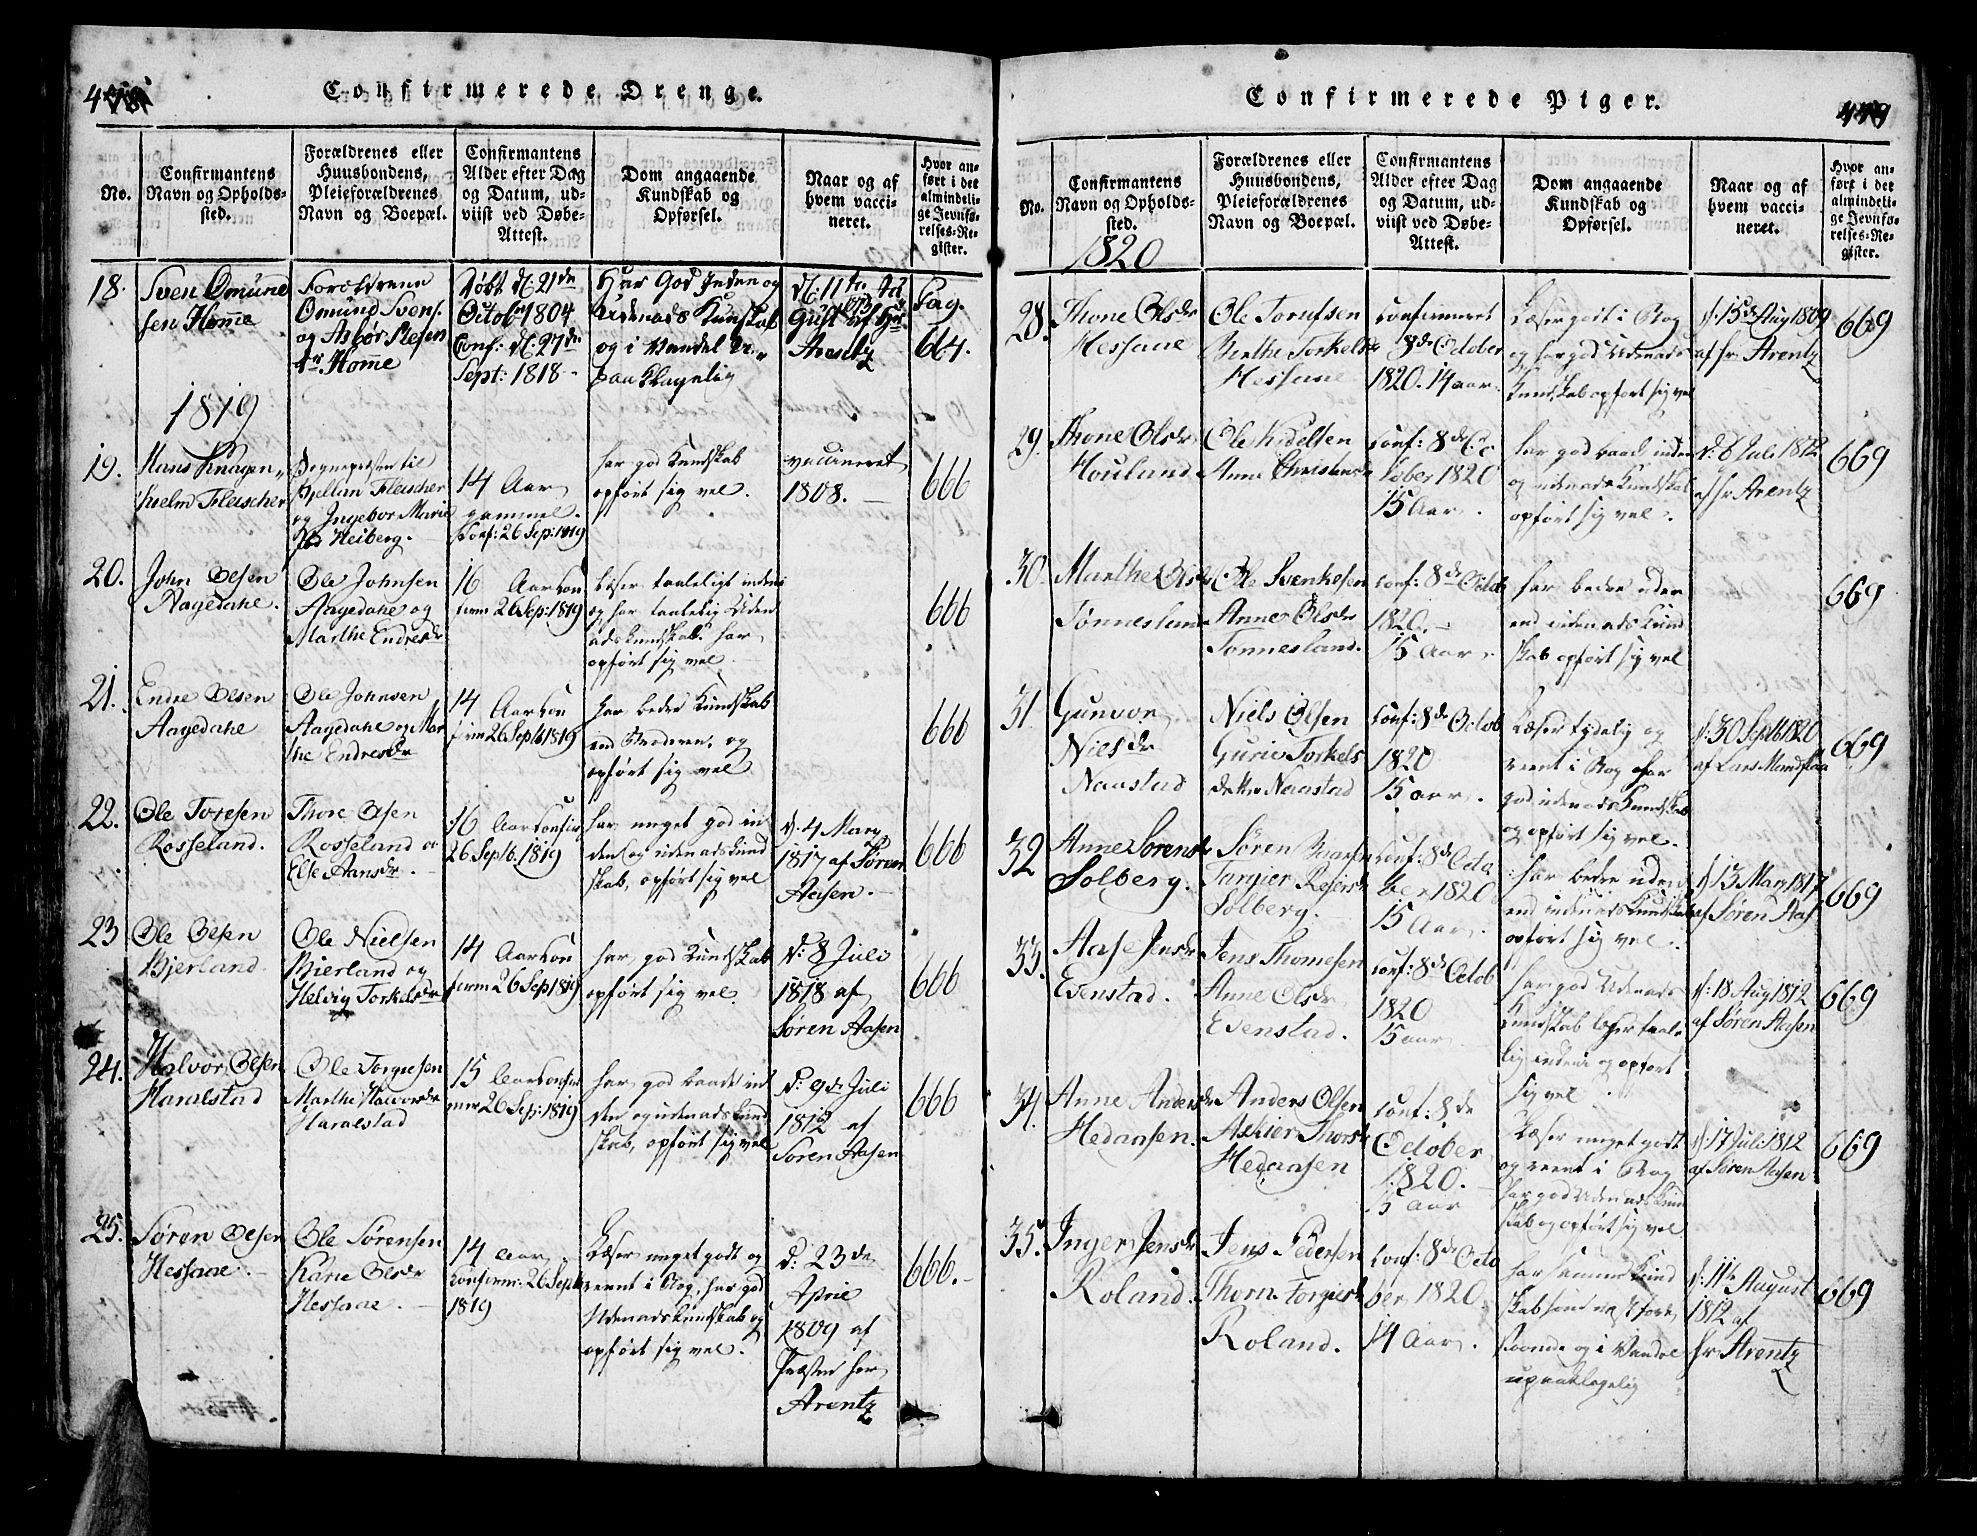 478
Confirmerede Drenge.
No.
Confirmantens
Navn og Opholds-
sted.
Forældrenes eller
Huusbondens,
Pleieforældrenes
Navn og Boepæl.
Confirmantens
Alder efter Dag
og Datum, ud-
viist ved Døbe-
Attest.
Dom angaaende
Kundskab og
Opførsel.
Naar og af
hvem vacci-
neret.
Hvor an-
ført i det
almindeli-
ge Jevnfø-
relses-Re-
gister.
18.
Sven Omunn
sen Homme
Forældrene
Omund Svens.
og Asbør Olesen
dr Homme
Døbt d. 21de
Octobr 1804
Conf: d. 27de
Sept: 1818
Har God Inden og
Udenads Kunskab
og i Vandel u-
paaklagelig
d. 11te Au
gust af Hr
Arentz
Pag.
664.
1819
19.
Hans Knagen-
hielm Fleischer
Sognepræsten til
Bjelland Fleischer
og Ingebor Marie
Heiberg.
14 Aar
gammel.
Conf: 26 Sep: 1819
har god Kundskab
opført sig vel.
vaccineret
1808.
666
20.
John Olsen
Aagedahe.
Ole Johnsen
Aagedahe og
Marthe Endresdr
16 Aar Con
firm 26 Sep: 1819
læser taaleligt inden
og har taalelig Uden
adskundskab. har
opført sig vel
666
21.
Endre Olsen
Aagedahe
Ole Johnsen
Aagedahe og Mar
the Endresdr
14 Aar Con
firm 26 Septb 1819
har bedre Kundskab
end Broderen, og
opført sig vel
666
22.
Ole Toresen
Rosseland.
Thore Olsen
Rosseland og
Else Hansdr.
16 Aar Confir
26 Septb. 1819
har meget god in
den og udenadskund
skab, opført sig vel
d. 4 Marz
1817 af Søren
Aasen.
666
23
Ole Olsen
Bjerland
Ole Nielsen
Bjerland og
Helvig Torkelsdr
14 Aar Con
firm 26 Sep 1819
har god Kundskab
opført sig vel.
d: 8 Juli
1818 af
Søren Aasen
666
24.
Halvor Olsen
Haralstad
Ole Torgiesen
Marthe Halvorsdr
Haralstad
15 Aar Confir
mer 26 Sep: 1819
har god baade in
den og udenadskund
skab, opført sig vel
d: 9de Juli
1812 af
Søren Aasen
666
25.
Søren Olsen
Hessaae.
Ole Sørensen
Karie Olsdr
Hessaae.
14 Aar
confirm: 26 Septb
1819
Læser meget godt og
reent i Bog, har god
Udenadskundskab og
opført sig vel.
d: 23de
Aprie
1809 af
Præsten her
Arentz
666.
449
Confirmerede Piger.
No.
Confirmantens
Navn og Opholds-
sted.
1820
Forældrenes eller
Huusbondens,
Pleieforældrenes
Navn og Boepæl.
Confirmantens
Alder efter Dag
og Datum, ud-
viist ved Døbe-
Attest.
Dom angaaende
Kundskab og
Opførsel.
Naar og af
hvem vacci-
neret.
Hvor an-
ført i det
almindeli-
ge Jevnfø-
relses-Re-
gister.
28.
Thone Olsdr
Hessaae
Ole Torufsen
Berthe Torkelsdr
Hessaae
confirmeret
8de October
1820. 14 aar.
Læser godt i Bog
og har god Udenads
Kundskab opført sig vel
d. 15de Aug 1809
af hr Arentz
669
29.
Thone Olsdr
Houland
Ole Kidelsen
Anne Christensdr
conf: 8de Oc
tober 1820
15 Aar.
har god baade inden
og udenads Kundskab
opført sig vel.
d. 8 Juli 1812
af hr Arentz
669
30.
Marthe Olsdr
Tønnesland
Ole Svenkesen
Anne Olsdr
Tønnesland.
conf: 8de Octob
1820.
15 Aar.
har bedre uden
end indenads kund
skab opført sig vel
669
31.
Gunvor
Nielsdr
Naastad
Niels Olsen
Gurie Torkels
datter Naastad
conf: 8de Octob
1820
15 aar.
Læser tydelig og
reent i Bog har
god udenads Kundskab
og opført sig vel.
d. 30 Septb 1820
af Lars Mandflaa
669
32
Anne Sørensdr
Solberg.
Søren
Targier Reiersdr
Solberg.
conf: 8de Octo
ber 1820
15 Aar.
har bedre uden
end indenads Kundskab
opført sig vel.
d. 13 Marz 1817
af Søren Aas
669
33.
Aase Jensdr
Evenstad.
Jens Thomesen
Anne Olsdr
Evenstad.
conf: 8de Octob
1820
15 aar
har god Udenads
Kundskab læser taale
lig inden og opført
sig vel
d. 18 Aug 1812
af Søren Aasen
669
34.
Anne Andersdr
Hedaasen.
Anders Olsen
Askier Thorsdr
Hedaasen
conf: 8de
October
1820.
15 Aar
Læser meget godt
og reent i Bog
har god Udenadskund
skab og opført sig vel
d. 17 Juli 1812
af Søren Aasen
669
35.
Inger Jensdr
Roland.
Jens Pedersen
Thorn Torgiersdr
Roland.
conf: 8de Octo
ber 1820.
14 Aar.
har samme Kund
skab som næstfore
staaende og i Vandel
upaaklagelig
d. 11te August
1812 af
hr Arentz
669